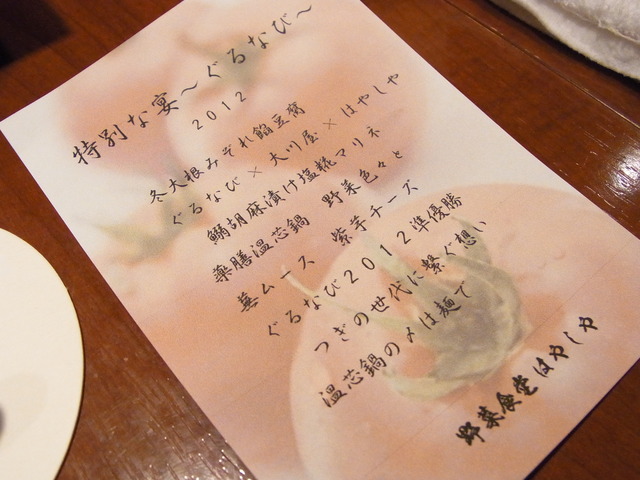 特別な宴～ぐるなび～
2012
冬大根みぞれ餡豆腐
ぐるなび×大川屋×はやしや
鰯胡麻漬け塩糀マリネ
薬膳温芯鍋　野菜色々と
葉ムース　紫芋チーズ
ぐるなび2012準優勝
つぎの世代に繋ぐ想い
温芯鍋の〆は麺で
野菜食堂はやしや